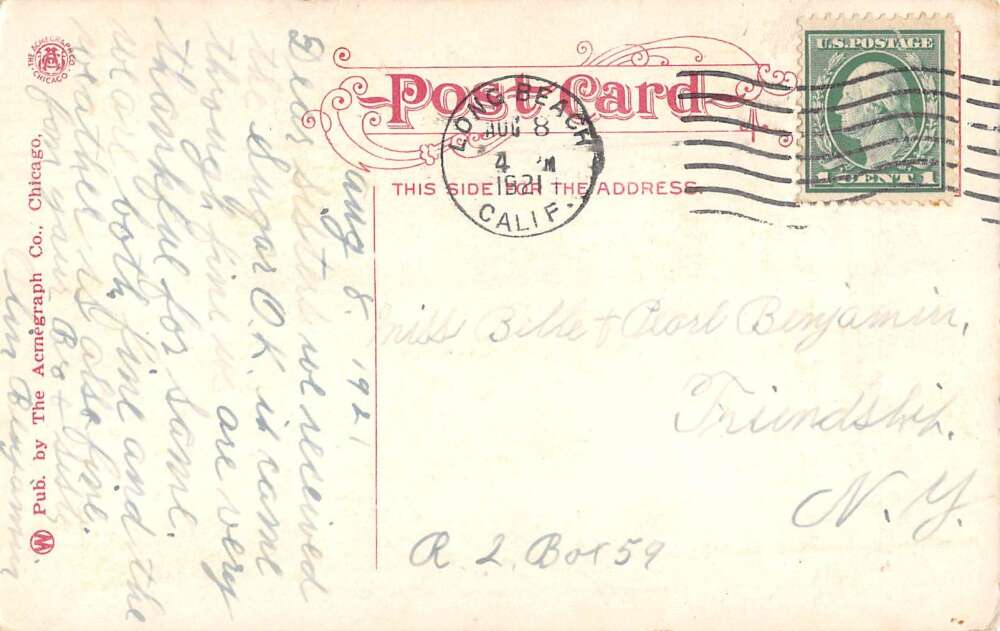 THE ACMEGRAPH CO.
CHICAGO
Post Card
THIS SIDE FOR THE ADDRESS.
LONG BEACH
AUG 8
4 PM
1921
CALIF.
U.S. POSTAGE
1 CENT 1
Aug 8. 1921
Dear sisters we received
the sugar O.K. it came
through fine we are very
thankful for same.
we are both fine and the
is also fine.
from your Bro + Sist
Benjamin
Miss Bille + Pearl Benjamin,
Friendship,
N. Y.
R. 2 Box 59
W Pub. by The Acmegraph Co., Chicago,